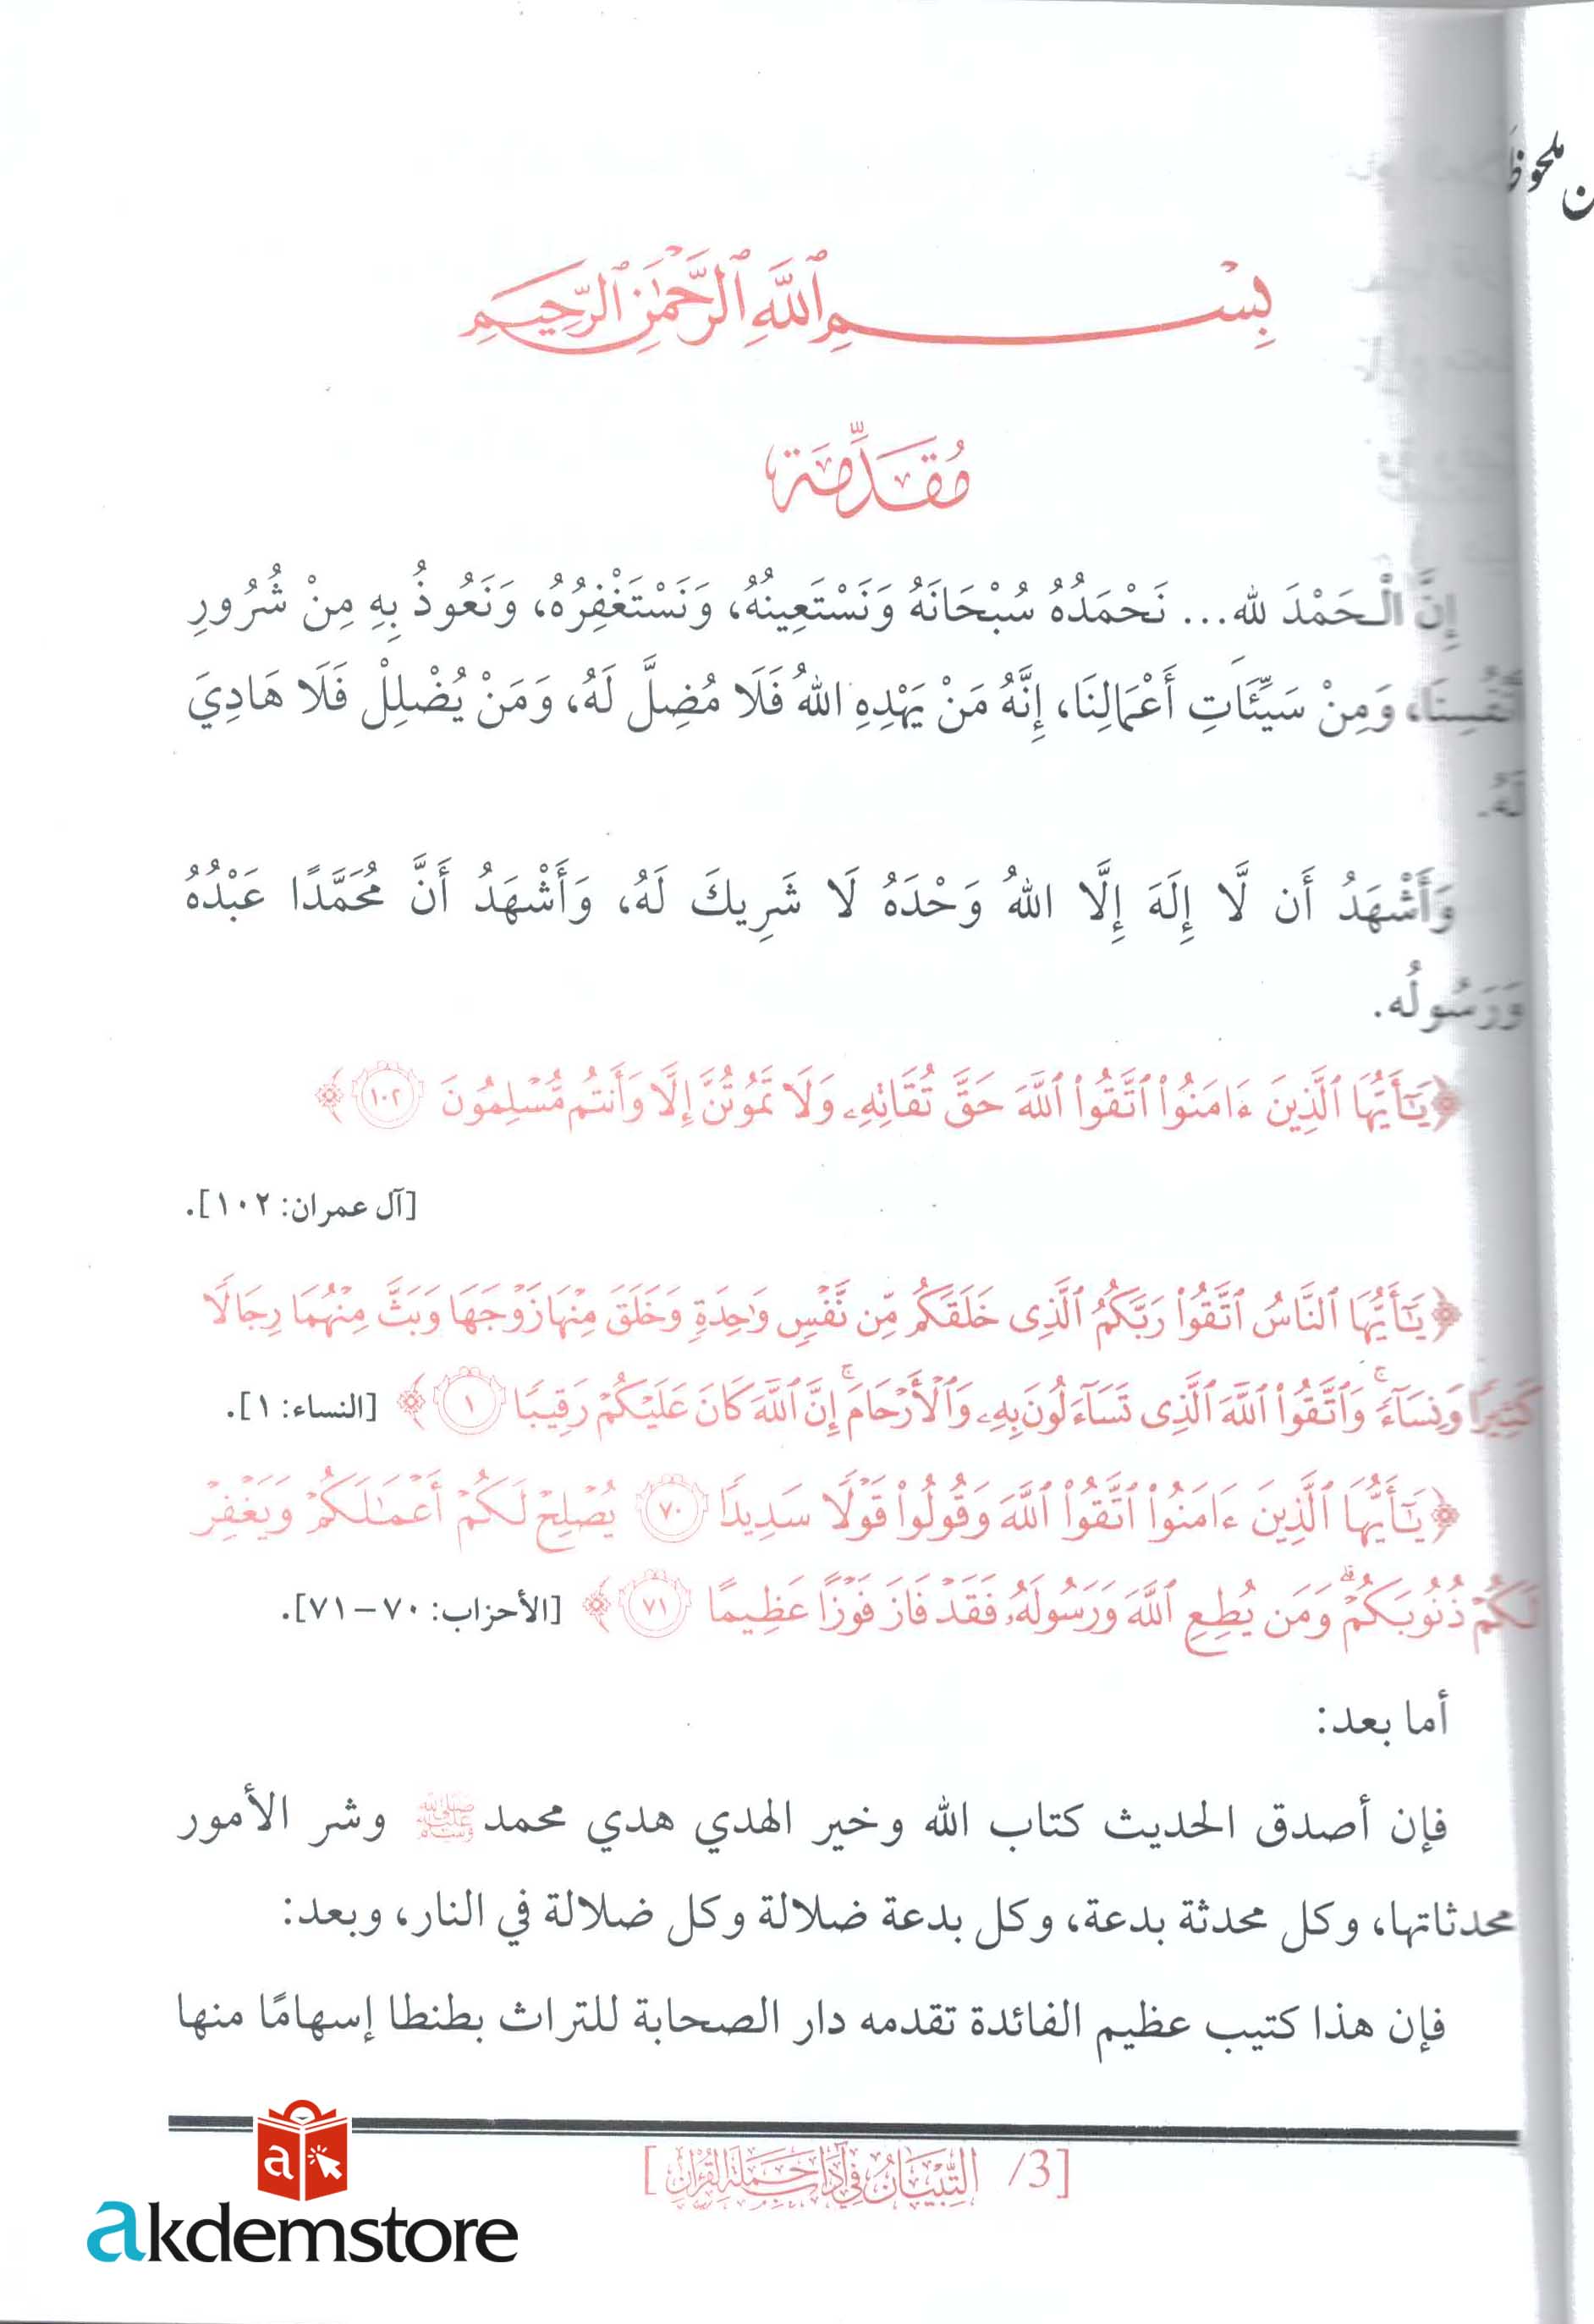 ن ملحوظ
بِسْــــــمِ ٱللَّهِ ٱلرَّحْمَٰنِ ٱلرَّحِيمِ
مُقَدِّمَة
إِنَّ الْحَمْدَ لله... نَحْمَدُهُ سُبْحَانَهُ وَنَسْتَعِينُهُ، وَنَسْتَغْفِرُهُ، وَنَعُوذُ بِهِ مِنْ شُرُورِ
أَنْفُسِنَا، وَمِنْ سَيِّئَاتِ أَعْمَالِنَا، إِنَّهُ مَنْ يَهْدِهِ اللهُ فَلَا مُضِلَّ لَهُ، وَمَنْ يُضْلِلْ فَلَا هَادِيَ
لَهُ.
وَأَشْهَدُ أَن لَّا إِلَهَ إِلَّا اللهُ وَحْدَهُ لَا شَرِيكَ لَهُ، وَأَشْهَدُ أَنَّ مُحَمَّدًا عَبْدُهُ
وَرَسُولُه.
﴿يَٰٓأَيُّهَا ٱلَّذِينَ ءَامَنُوا۟ ٱتَّقُوا۟ ٱللَّهَ حَقَّ تُقَاتِهِۦ وَلَا تَمُوتُنَّ إِلَّا وَأَنتُم مُّسْلِمُونَ ١٠٢﴾
[آل عمران: ١٠٢].
﴿يَٰٓأَيُّهَا ٱلنَّاسُ ٱتَّقُوا۟ رَبَّكُمُ ٱلَّذِى خَلَقَكُم مِّن نَّفْسٍ وَٰحِدَةٍ وَخَلَقَ مِنْهَا زَوْجَهَا وَبَثَّ مِنْهُمَا رِجَالًا
كَثِيرًا وَنِسَآءً ۚ وَٱتَّقُوا۟ ٱللَّهَ ٱلَّذِى تَسَآءَلُونَ بِهِۦ وَٱلْأَرْحَامَ ۚ إِنَّ ٱللَّهَ كَانَ عَلَيْكُمْ رَقِيبًا ١﴾ [النساء: ١].
﴿يَٰٓأَيُّهَا ٱلَّذِينَ ءَامَنُوا۟ ٱتَّقُوا۟ ٱللَّهَ وَقُولُوا۟ قَوْلًا سَدِيدًا ٧٠ يُصْلِحْ لَكُمْ أَعْمَٰلَكُمْ وَيَغْفِرْ
لَكُمْ ذُنُوبَكُمْ ۗ وَمَن يُطِعِ ٱللَّهَ وَرَسُولَهُۥ فَقَدْ فَازَ فَوْزًا عَظِيمًا ٧١﴾ [الأحزاب: ٧٠ – ٧١].
أما بعد:
فإن أصدق الحديث كتاب الله وخير الهدي هدي محمد ﷺ وشر الأمور
محدثاتها، وكل محدثة بدعة، وكل بدعة ضلالة وكل ضلالة في النار، وبعد:
فإن هذا كتيب عظيم الفائدة تقدمه دار الصحابة للتراث بطنطا إسهامًا منها
[3/ التِّبْيَانُ فِي آدَابِ حَمَلَةِ الْقُرْآنِ]
a
akdemstore